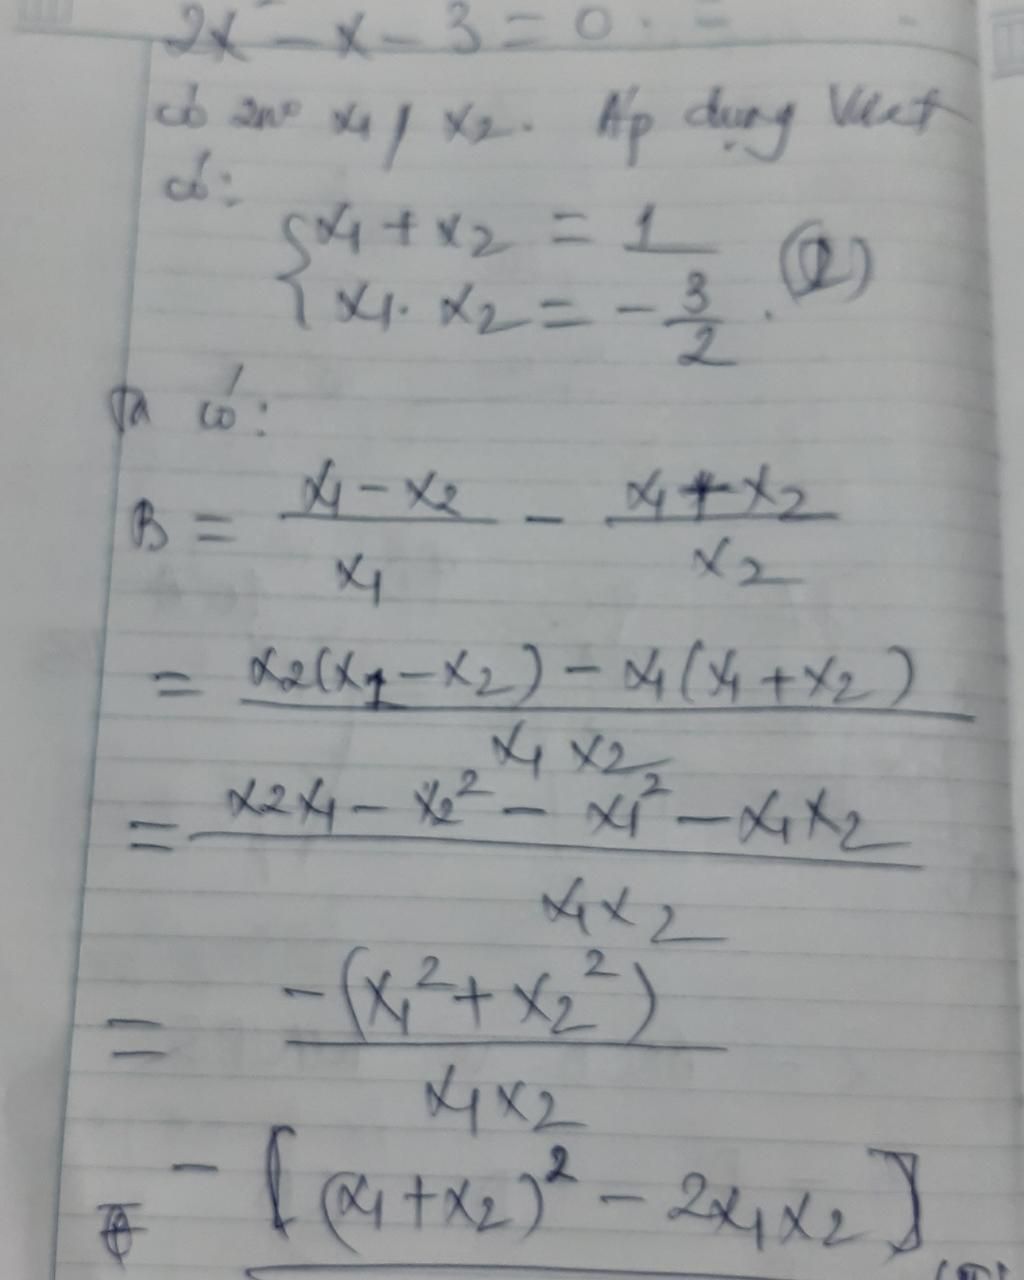 2x² - x - 3 = 0.
có 2no x₁, x₂. Áp dụng Viet
có:
{ x₁ + x₂ = 1
{ x₁. x₂ = - 3/2. (1)
Ta có:
B = (x₁ - x₂)/x₁ - (x₁ + x₂)/x₂
= (x₂(x₁ - x₂) - x₁(x₁ + x₂))/(x₁ x₂)
= (x₂x₁ - x₂² - x₁² - x₁x₂)/(x₁x₂)
= -(x₁² + x₂²)/(x₁x₂)
- [(x₁ + x₂)² - 2x₁x₂]